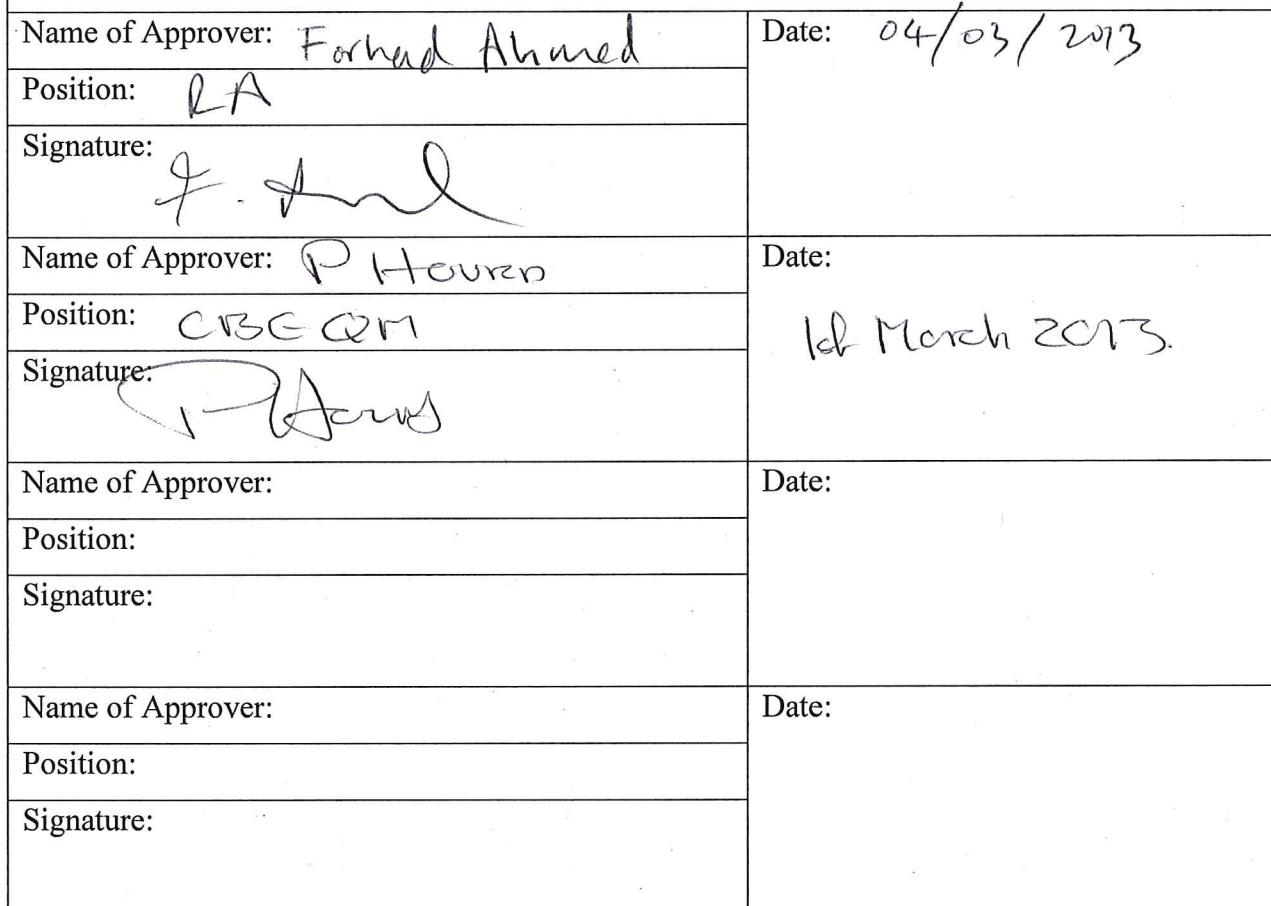 Name of Approver: Forhad Ahmed
Date: 04/03/2013
Position: RA
Signature:
Name of Approver: P
Date:
Position: CBE QM
1st March 2013.
Signature:
Name of Approver:
Date:
Position:
Signature:
Name of Approver:
Date:
Position:
Signature: